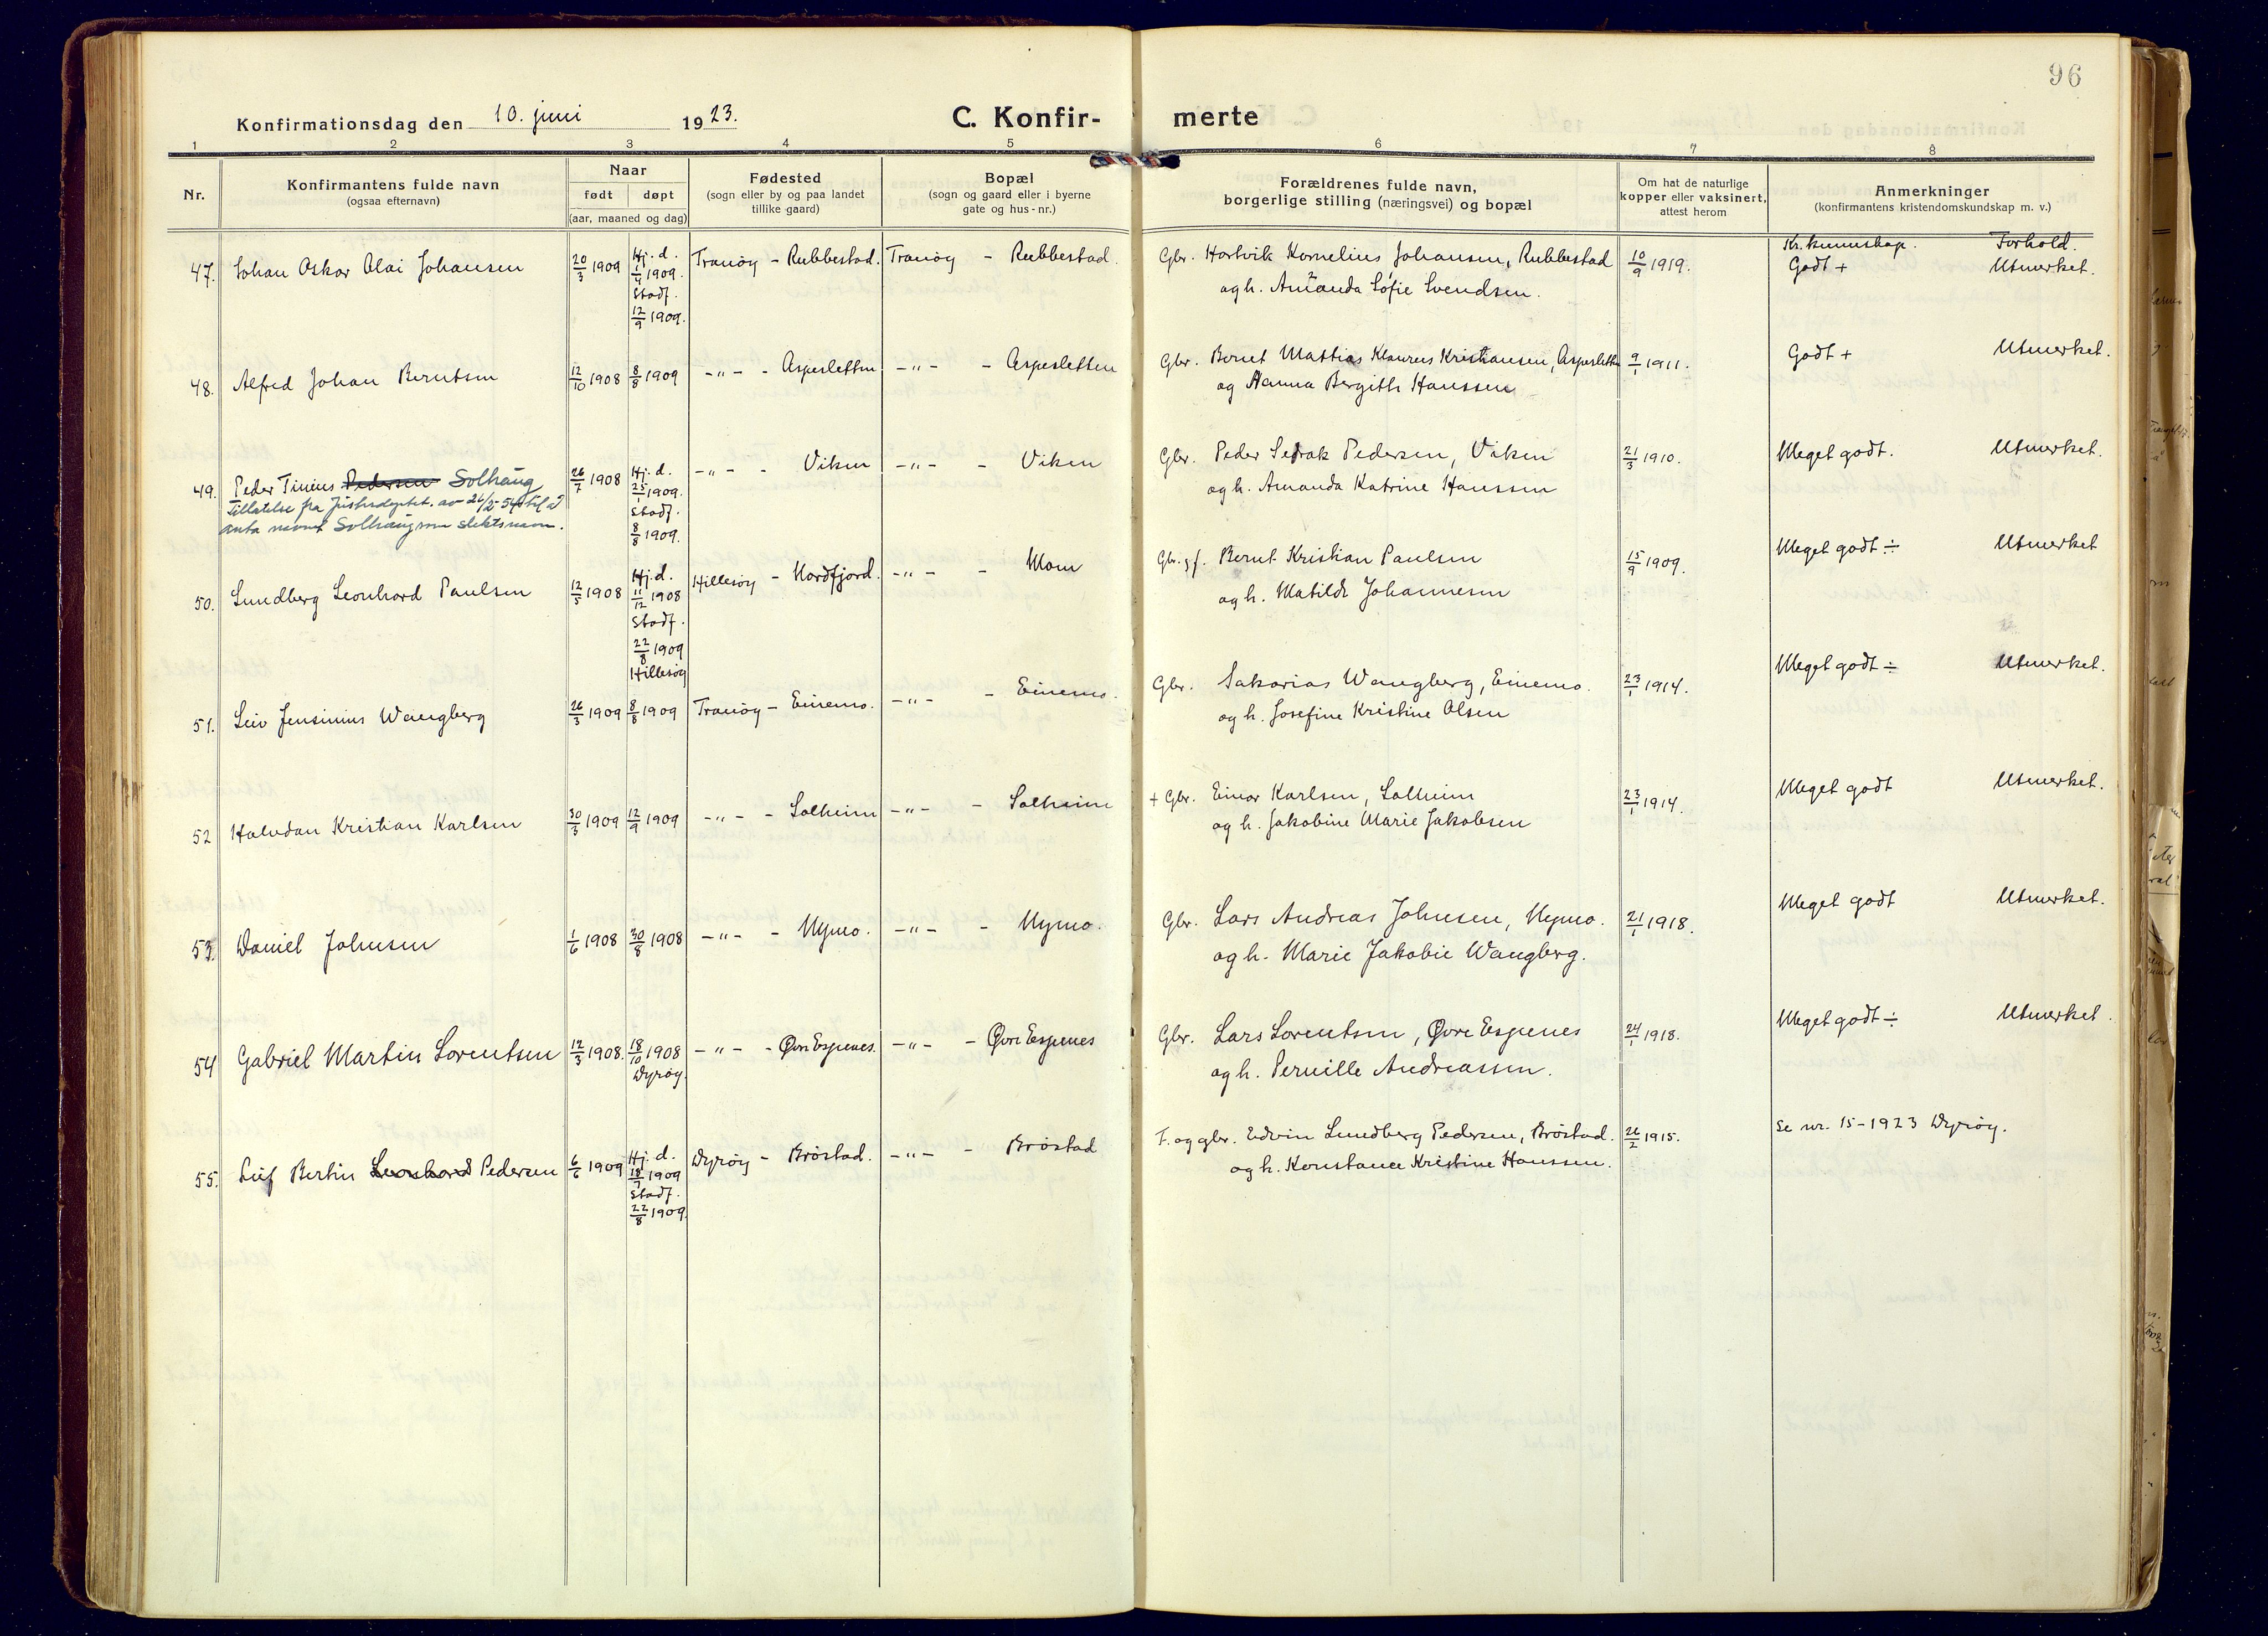 96
Konfirmationsdag den 10. juni 1923.
C. Konfir- merte
1 2 3 4 5 6 7 8
Nr.
Konfirmantens fulde navn
(ogsaa efternavn)
Naar
født døpt
(aar, maaned og dag)
Fødested
(sogn eller by og paa landet
tillike gaard)
Bopæl
(sogn og gaard eller i byerne
gate og hus-nr.)
Forældrenes fulde navn,
borgerlige stilling (næringsvei) og bopæl
Om hat de naturlige
kopper eller vaksinert,
attest herom
Anmerkninger
(konfirmantens kristendomskundskap m. v.)
Kr. kunnskap. Forhold.
47. Johan Oskar Olai Johansen 20/3 1909 Hj. d. 1/4 1909. Stadf. 12/9 1909. Tranöy - Rubbestad. Tranöy - Rubbestad. Gbr. Hartvik Kornelius Johansen, Rubbestad 10/9 1919. Godt + Utmerket.
og h. Amanda Sofie Svendsen.
48. Alfred Johan Berntsen 12/10 1908 8/8 1909 -"- - Aspesletten -"- - Aspesletten Gbr. Bernt Mattias Klaureus Kristiansen, Aspesletten 9/1 1911. Godt + Utmerket.
og Hanna Bergitte Hanssen
49. Peder Tinius Pedersen Solhaug 26/7 1908 Hj. d. 25/1 1909. Stadf. 8/8 1909. -"- - Viken -"- - Viken Gbr. Peder Sedrak Pedersen, Viken 21/3 1910. Meget godt. Utmerket.
Tillatelse fra Justisdeptet. av 26/2-54 til å
anta navnet Solhaug som slektsnavn.
og h. Amanda Katrine Hanssen
50. Lundberg Leonhard Paulsen 12/5 1908 Hj. d. 11/12 1908 Stadf. 22/8 1909 Hillesöy Hillesöy - Mordfjord. -"- - Moen Gbr. gf. Bernt Kristian Paulsen 15/9 1909. Meget godt ÷ Utmerket
og h. Matilde Johannesen
51. Leiv Jensinius Wangberg 26/3 1909 8/8 1909 Tranöy - Einemo. -"- - Einemo. Gbr. Sakarias Wangberg, Einemo. 23/1 1914. Meget godt ÷ Utmerket.
og h. Josefine Kristine Olsen
52 Halvdan Kristian Karlsen 30/3 1909 12/9 1909 -"- - Solheim -"- - Solheim + Gbr. Einar Karlsen, Solheim 23/1 1914. Meget godt Utmerket.
og h. Jakobine Marie Jakobsen
53. Daniel Johnsen 1/6 1908 30/8 1908 -"- - Nymo. -"- - Nymo. Gbr. Lars Andreas Johnsen, Nymo. 21/1 1918. Meget godt Utmerket.
og h. Marie Jakobie Wangberg.
54 Gabriel Martin Lorentsen 12/3 1908. 18/10 1908 Dyröy. -"- - Øvre Espenes. -"- - Øvre Espenes Gbr. Lars Lorentsen, Øvre Espenes 24/1 1918. Meget godt ÷ Utmerket.
og h. Pernille Andreassen.
55. Leif Bertin Leonhard Pedersen 6/6 1909 Hj. d. 18/7 1909 Stadf. 22/8 1909. Dyröy - Bröstad. -"- - Bröstad F. og gbr. Edvin Lundberg Pedersen, Bröstad. 26/2 1915. Se nr. 15-1923 Dyröy.
og h. Konstance Kristine Hanssen.